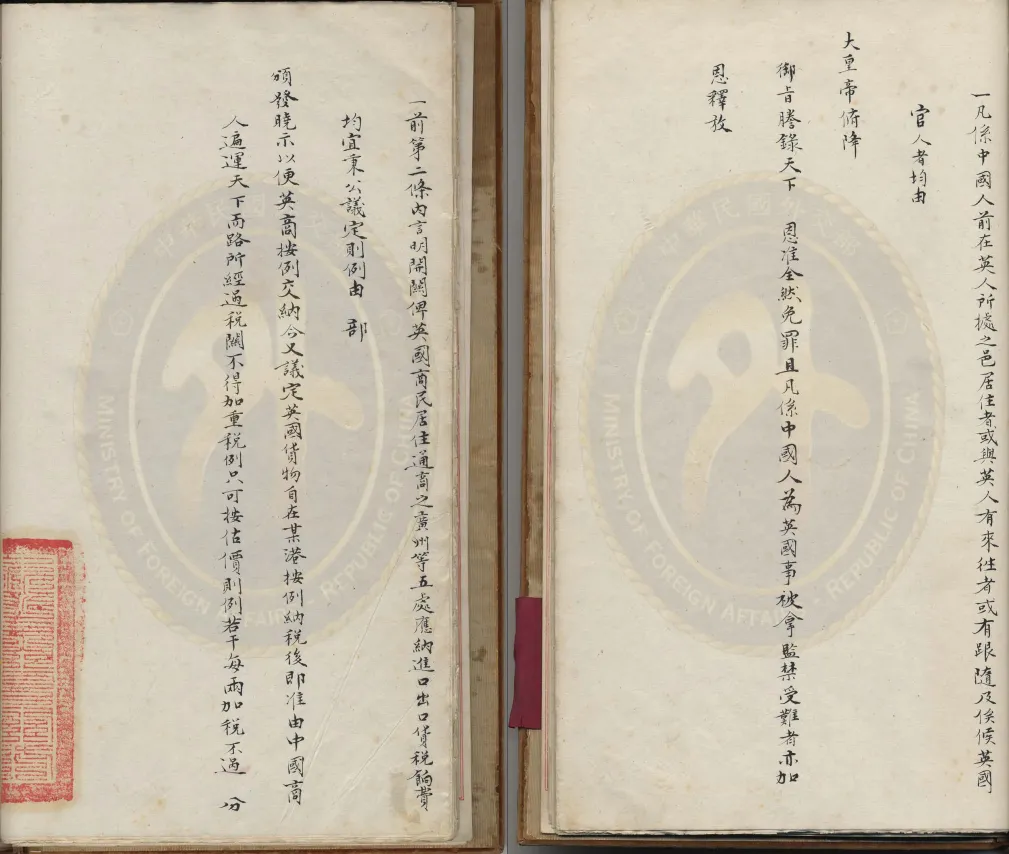 一凡係中國人前在英人所據之邑居住者或與英人有來往者或有跟隨及俟候英國
官人者均由
大皇帝俯降
御旨謄錄天下 恩准全然免罪且凡係中國人為英國事被拿監禁受難者亦加
恩釋放
一前第二條內言明開關俾英國商民居住通商之廣州等五處應納進口出口貨稅餉費
均宜秉公議定則例由 部
頒發曉示以便英商按例交納今又議定英國貨物自在某港按例納稅後即准由中國商
人遍運天下而路所經過稅關不得加重稅例只可按估價則例若干每兩加稅不過 分
MINISTRY OF FOREIGN AFFAIRS · REPUBLIC OF CHINA
MINISTRY OF FOREIGN AFFAIRS · REPUBLIC OF CHINA